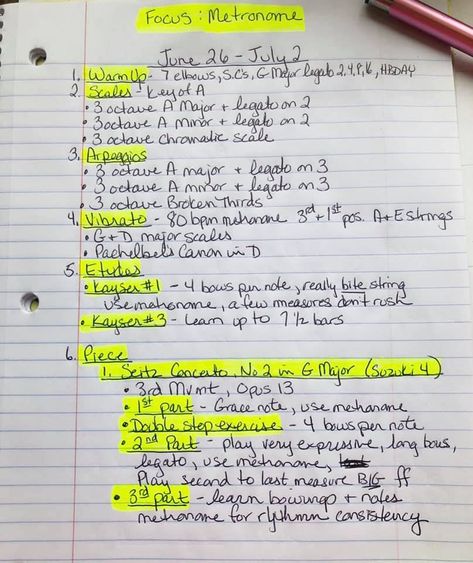 Focus: Metronome
June 26 - July 2
1. Warm Up - 7 elbows, S.C's, G Major legato 2,4,8,16, HBDAY
2. Scales - Key of A
• 3 octave A Major + legato on 2
• 3 octave A minor + legato on 2
• 3 octave chromatic scale
3. Arpeggios
• 3 octave A major + legato on 3
• 3 octave A minor + legato on 3
• 3 octave Broken Thirds
4. Vibrato - 80 bpm metronome 3rd + 1st pos. A + E strings
• G + D major scales
• Pachelbel's Canon in D
5. Etudes
• Kayser #1 - 4 bows per note, really bite string
use metronome, a few measures don't rush
• Kayser #3 - learn up to 7 1/2 bars
6. Piece
1. Seitz Concerto, No 2 in G Major (Suzuki 4)
• 3rd Mvmt, Opus 13
• 1st part - Grace note, use metronome
• Double stop exercise - 4 bows per note
• 2nd Part - play very expressive, long bows,
legato, use metronome,
Play second to last measure BIG ff
• 3rd part - learn bowings + notes
metronome for rhythmn consistency